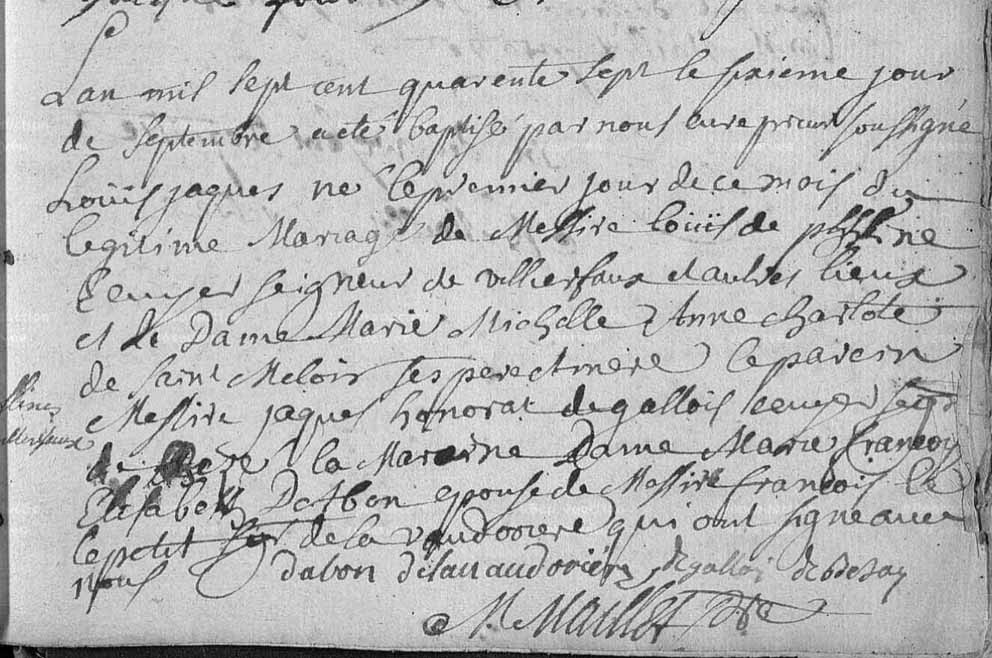 Lan mil sept cent quarente sept le sixieme jour
de septembre a eté baptisé par nous cure prieur soussigné
Loüis jaques ne le premier jour de ce mois du
legitime Mariage de Messire loüis de
Ecuyer seigneur de villiersfaux et autres lieux
et de Dame Marie Michelle Anne charlote
de saint Meloir ses pere et mere le parein
Messire jaques honorat de gallois ecuyer seigr
de la Mareine Dame Marie francois
Elisabeth Dabon epouse de Messire francois le
le petit sgr de la vaudoriere qui ont signe avec
nous dabon delavaudoriere degallois
M. Maillet